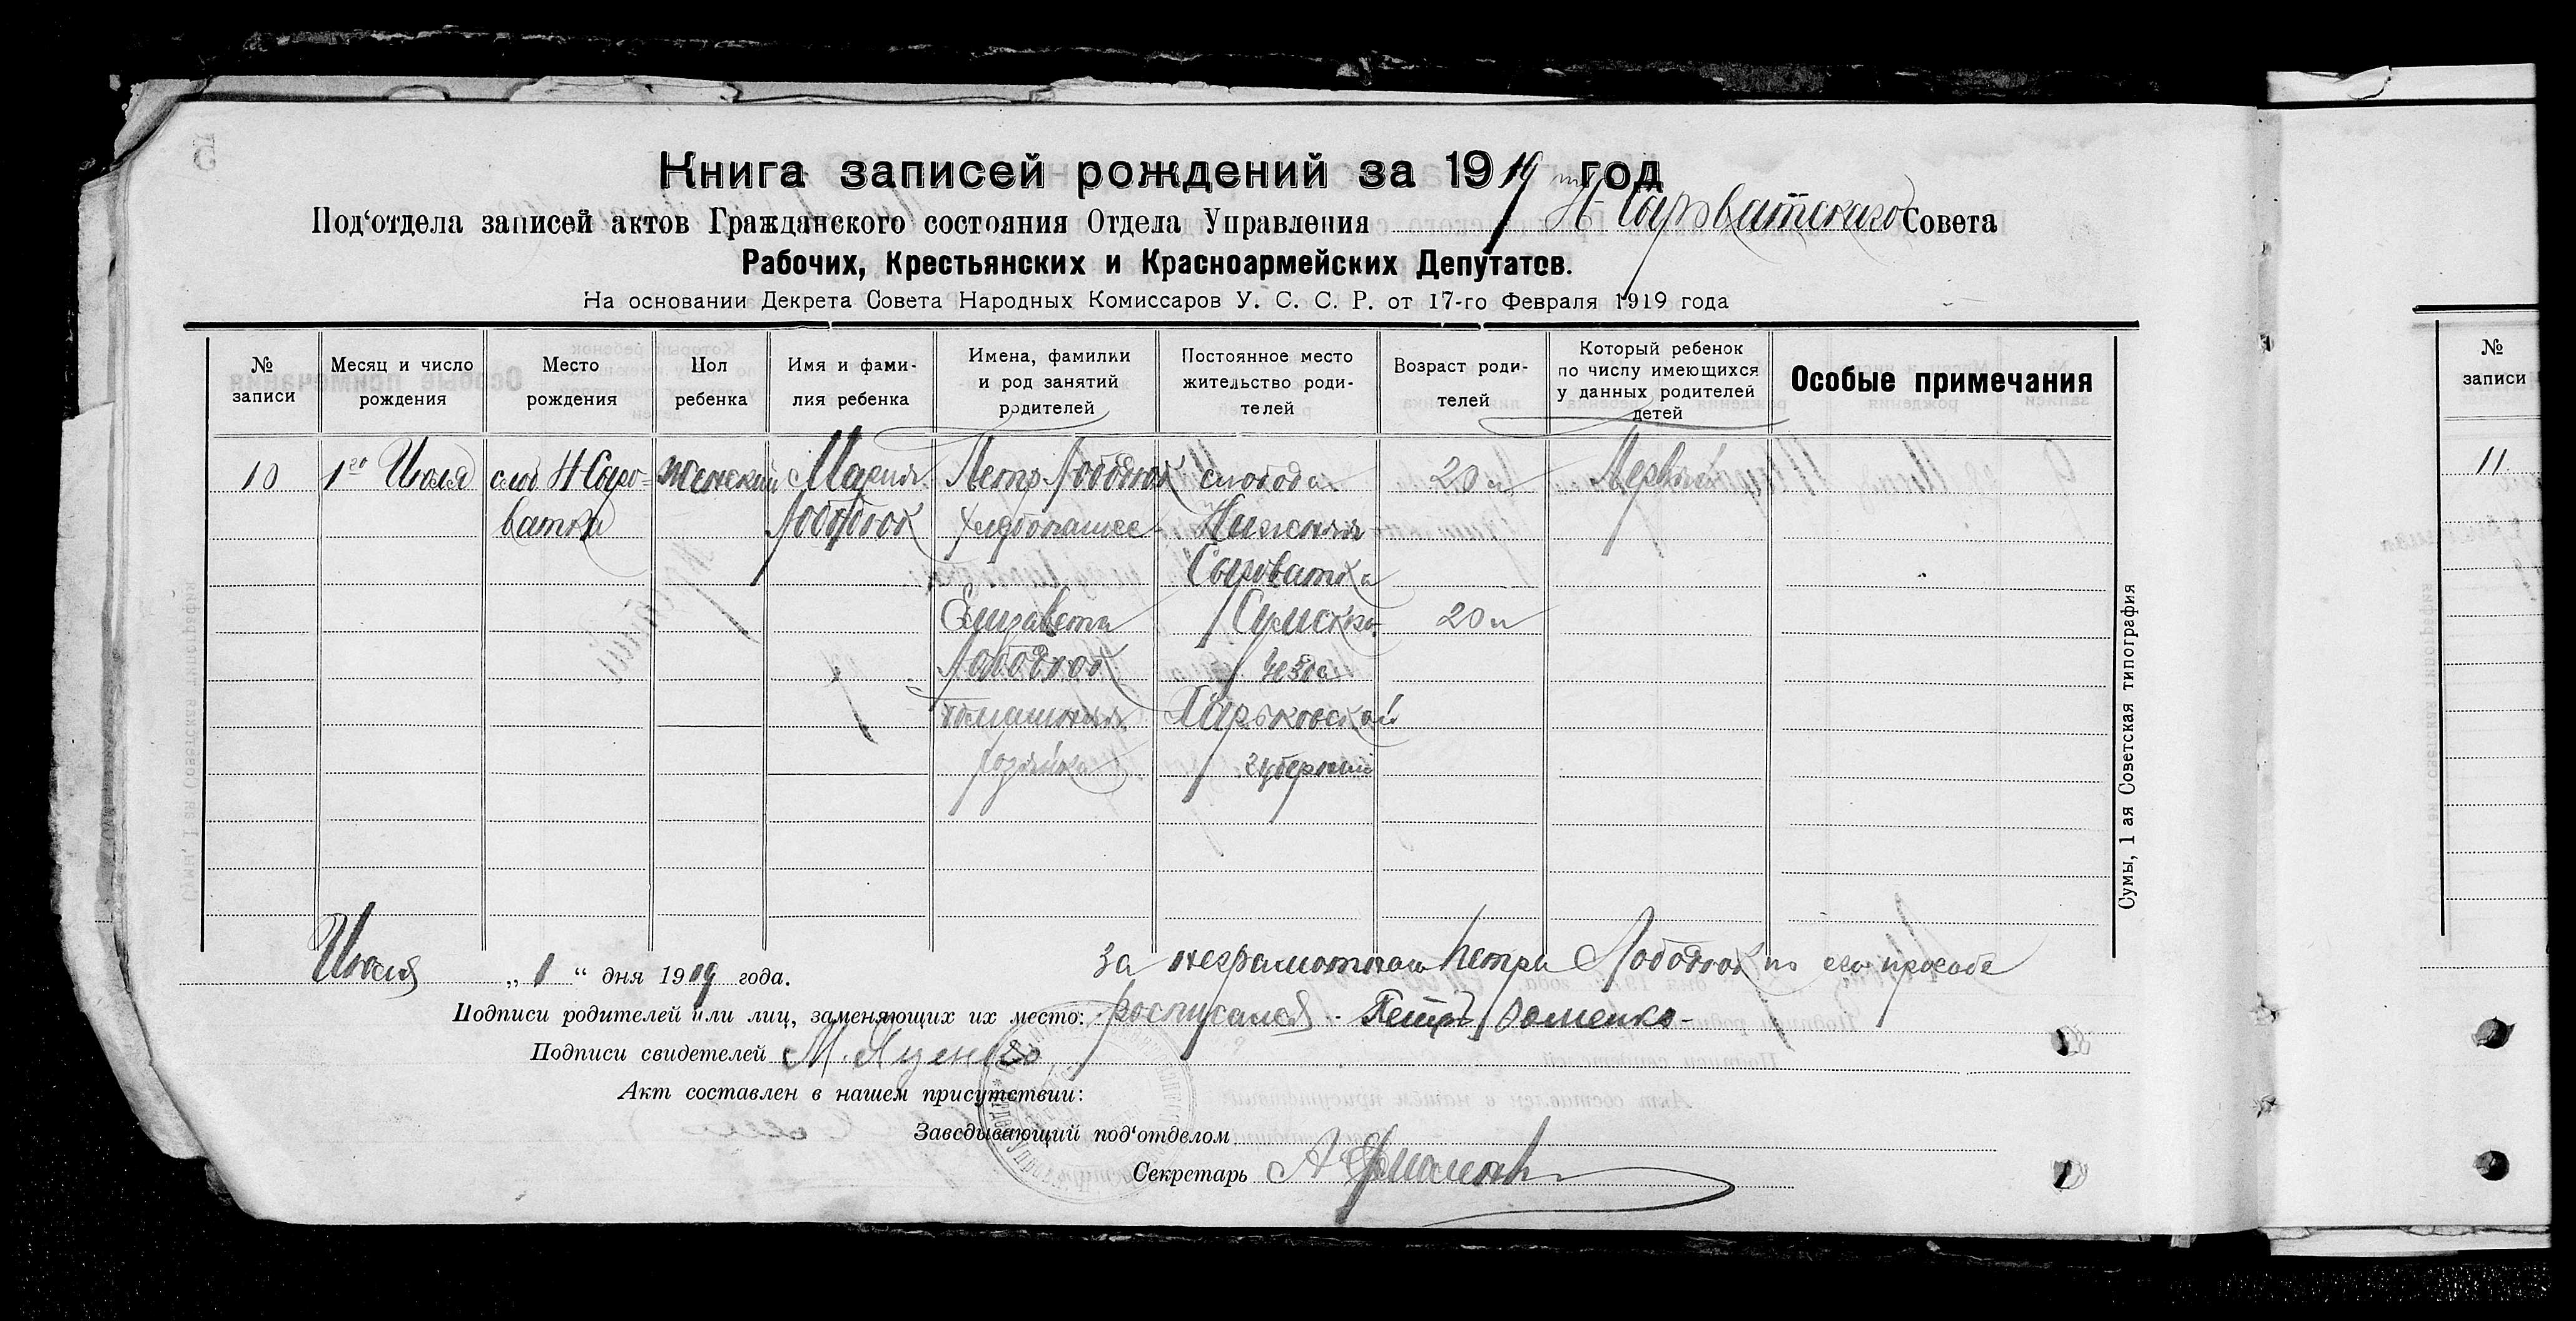 Книга записей рождений за 1919 год
Под‘отдела записей актов Гражданского состояния Отдела Управления Н Сыроватского Совета
Рабочих, Крестьянских и Красноармейских Депутатов.
На основании Декрета Совета Народных Комиссаров У. С. С. Р. от 17-го Февраля 1919 года
№ записи
Месяц и число рождения
Место рождения
Пол ребенка
Имя и фами-
лия ребенка
Имена, фамилии
и род занятий
родителей
Постоянное место
жительство роди-
телей
Возраст роди-
телей
Который ребенок
по числу имеющихся
у данных родителей
детей
Особые примечания
10
1го Июля
слоб Н Сыро-
ватка
женский
Мария
Лободюк
Петр Лободюк
хлебопашес
Елизавета
Лободюк
домашняя
хозяйка
слобода
Нижняя
Сыроватка
Сумско
уезда
Харьковской
губернии
20 л
20 л
Первый
Июля „ 1 “ дня 1919 года.
За неграмотного Петра Лободюк по его просьбе
Подписи родителей или лиц, заменяющих их место: росписался Петръ
Подписи свидетелей М. Яценко
Акт составлен в нашем присутствии:
Заведывающий под‘отделом
Секретарь А
Сумы, 1 ая Советская типография
№
записи
11